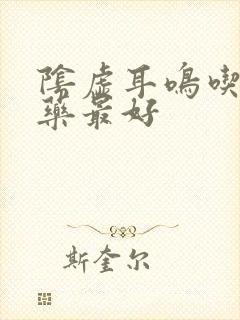 陰虛耳鳴喫
藥最好
斯奎尔